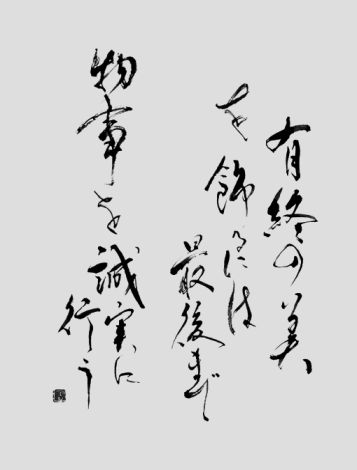 有終の美
を飾るには
最後まで
物事を誠実に
行う